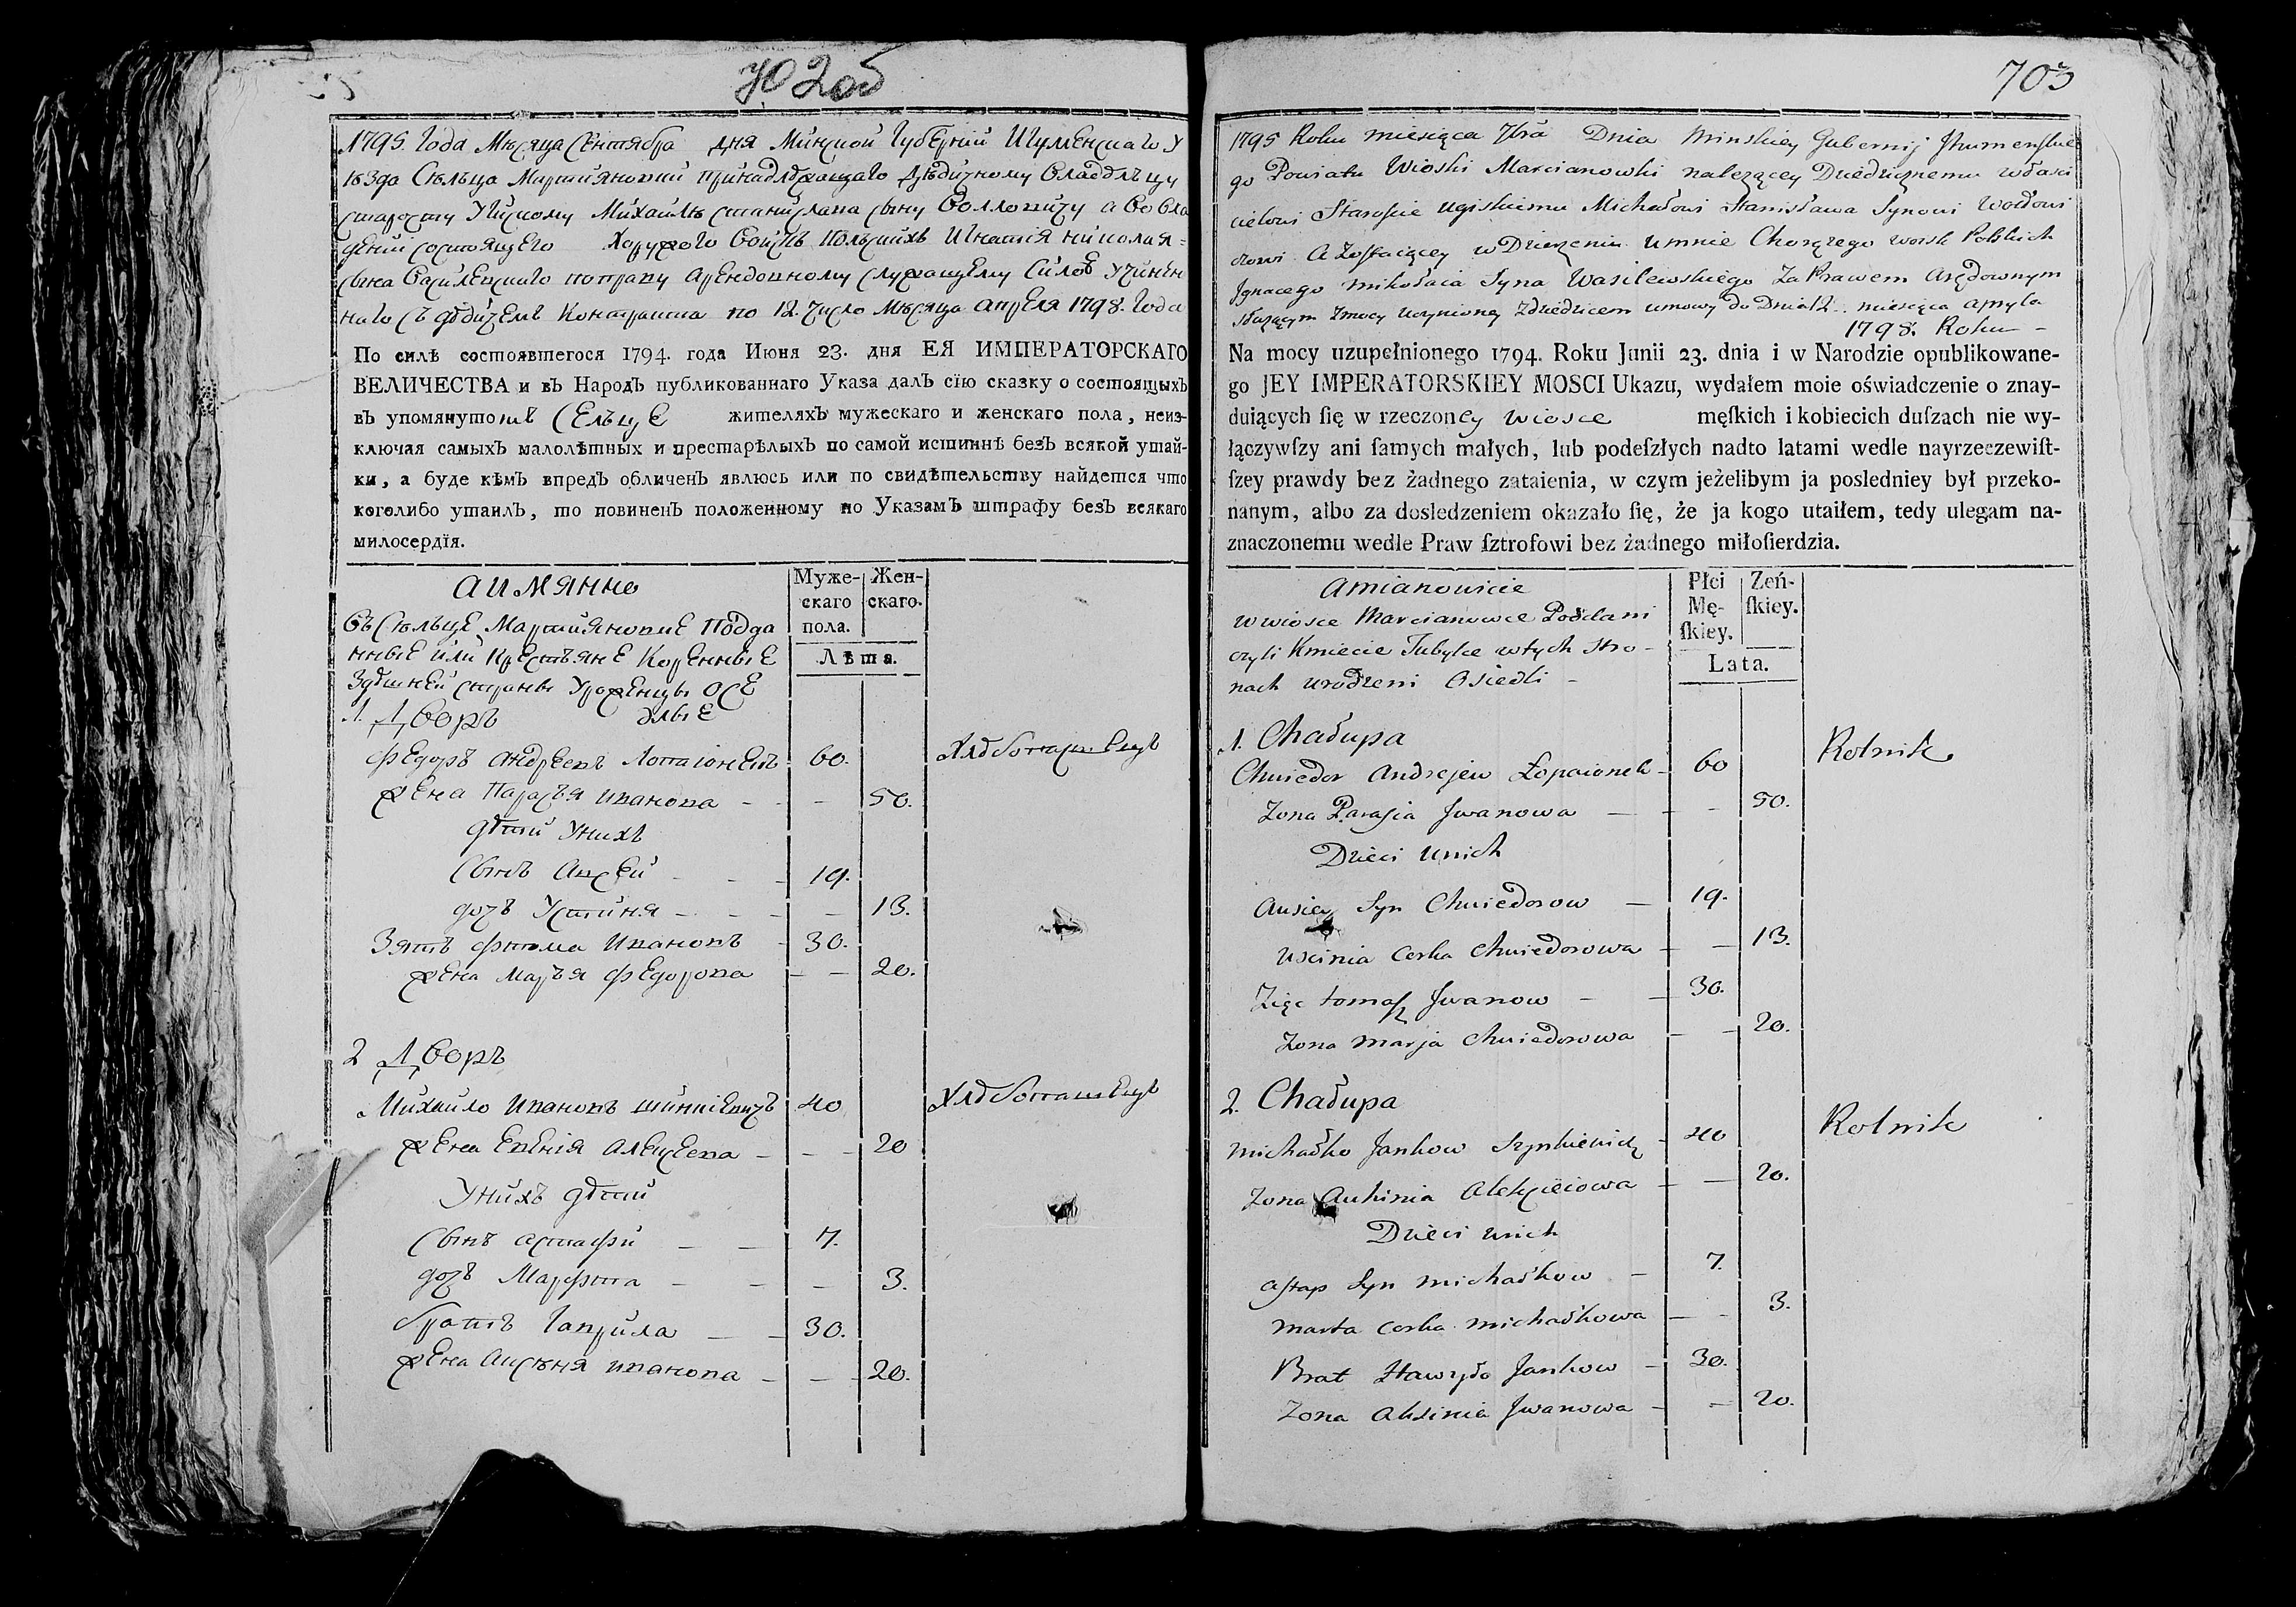 702об
1795. Года Мѣсяца Сентября дня Минской Губерніи Игуменскаго У
ѣзда Сѣльца Мартияновки принадлѣжащаго Дѣдичному Владѣлцу
старосту Угискому Михаилѣ станислава сыну Волловичу а во вла
деніи состоящего Хорунжего Войскъ Польскихъ Игнатія николая=
сына Василевскаго поправу арендовному служащему Силою учинен
наго съ дѣдичемъ Контракта по 12. число Мѣсяца апреля 1798. Года
По силѣ состоявшегося 1794. года Июня 23. дня ЕЯ ИМПЕРАТОРСКАГО
ВЕЛИЧЕСТВА и въ Народъ публикованнаго Указа далъ сїю сказку о состоящыхъ
въ упомянутомъ Сельце жителяхъ мужескаго и женскаго пола, неиз-
ключая самыхъ малолѣтныхъ и престарѣлыхъ по самой истиннѣ безъ всякой утай-
ки, а буде кѣмъ впредъ обличенъ явлюсь или по свидѣтельству найдется что
коголибо утаилъ, то повиненъ положенному по Указамъ штрафу безъ всякаго
милосердїя.
аимянно
Муже-скаго пола.
Жен-скаго.
Лѣта.
Въ Сѣльце Мартияновке Подда
нные или Крестьяне Коренные
Здѣшней страны Уроженцы осе
длые
1. Дворъ
Федоръ андреевъ Лопаіонекъ 60. Хлѣбопашецъ
жена Парасья иванова - - 50.
дѣти Унихъ
Сынъ Авсей - - 19.
дочь Устиня - - - 13.
Зять фтома Ивановъ - 30.
жена Марья федорова - - 20.
2 Дворъ
Михайло ивановъ шинкіевичъ 40 Хлѣбопашецъ
жена Евгенія алексеева - - - 20
Унихъ дѣти
Сынъ астафи - - 7.
дочь Марфта - - - 3.
братъ Гаврила - - 30.
жена аксѣня иванова - - - 20.
703
1795 Roku miesiąca 7bra Dnia Minskiey Gubernij Jhumenskie
go Powiatu Wioski Marcianowki należącey Dziedzicznemu właści
cielowi Staroscie ugiskiemu Michałowi Stanisława Synowi Wołłowi
czowi A Zostaiącey w Dzierzeniu Umnie Chorążego woisk Polskich
Jgnacego mikołaia Syna Wasilewskiego Za Prawem Arędownym
służącym Zmocy uczynioney Zdziedzicem umowy do Dnia 12. miesiąca apryla
1798. Roku -
Na mocy uzupełnionego 1794. Roku Junii 23. dnia i w Narodzie opublikowane-
go JEY IMPERATORSKIEY MOSCI Ukazu, wydałem moie oświadczenie o znay-
duiących ſię w rzeczoney wiosce męſkich i kobiecich duſzach nie wy-
łączywſzy ani ſamych małych, lub podeſzłych nadto latami wedle nayrzeczewiſt-
ſzey prawdy bez żadnego zataienia, w czym jeżelibym ja posledniey był przeko-
nanym, albo za dosledzeniem okazało ſię, że ja kogo utaiłem, tedy ulegam na-
znaczonemu wedle Praw ſztrofowi bez żadnego miłoſierdzia.
Amianowicie
Płci Mę-ſkiey.
Zeń-ſkiey.
Lata.
w wiosce Marcianowce Poddani
czyli Kmiecie Tubylce wtych stro-
nach urodzeni Osiedli -
1. Chałupa
Chwiedor Andrejew Łopaionek - 60 Rolnik
Zona Parasia Jwanowa - - 50.
Dzieci unich
Ausiey Syn Chwiedorow - 19.
Uscinia Corka Chwiedorowa - - 13.
Zięc tomasz Jwanow - - 30.
Zona marja Chwiedorowa - - 20.
2. Chałupa
Michałko Jankow Szynkiewicz - 40 Rolnik
Zona Auhinia Alekcieiowa - - 20.
Dzieci unich
Astap Syn michałkow - 7.
marta Corka michałkowa - - 3.
Brat Hawryło Jankow - 30.
Zona Aksinia Jwanowa - - 20.